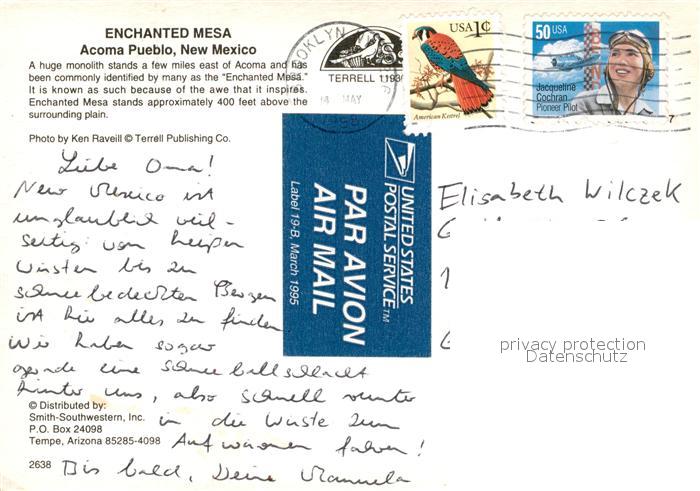 ENCHANTED MESA
Acoma Pueblo, New Mexico
A huge monolith stands a few miles east of Acoma and has
been commonly identified by many as the "Enchanted Mesa."
It is known as such because of the awe that it inspires.
Enchanted Mesa stands approximately 400 feet above the
surrounding plain.
Photo by Ken Raveill © Terrell Publishing Co.
TERRELL
MAY
USA 1¢
American Kestrel
50 USA
Jacqueline
Cochran
Pioneer Pilot
7
Liebe Oma!
New Mexico ist
unglaublich viel-
seitig von heißen
Wüsten bis zu
schneebedeckten Bergen
ist hie alles zu finden
Wir haben sogar
gerade eine Schneeballschlacht
hinter uns, also schnell runter
in die Wüste zum
Aufwärmen fahren!
Bis bald, Deine Manuela
UNITED STATES
POSTAL SERVICE™
PAR AVION
AIR MAIL
Label 19-B, March 1995
Elisabeth Wilczek
privacy protection
Datenschutz
© Distributed by:
Smith-Southwestern, Inc.
P.O. Box 24098
Tempe, Arizona 85285-4098
2638